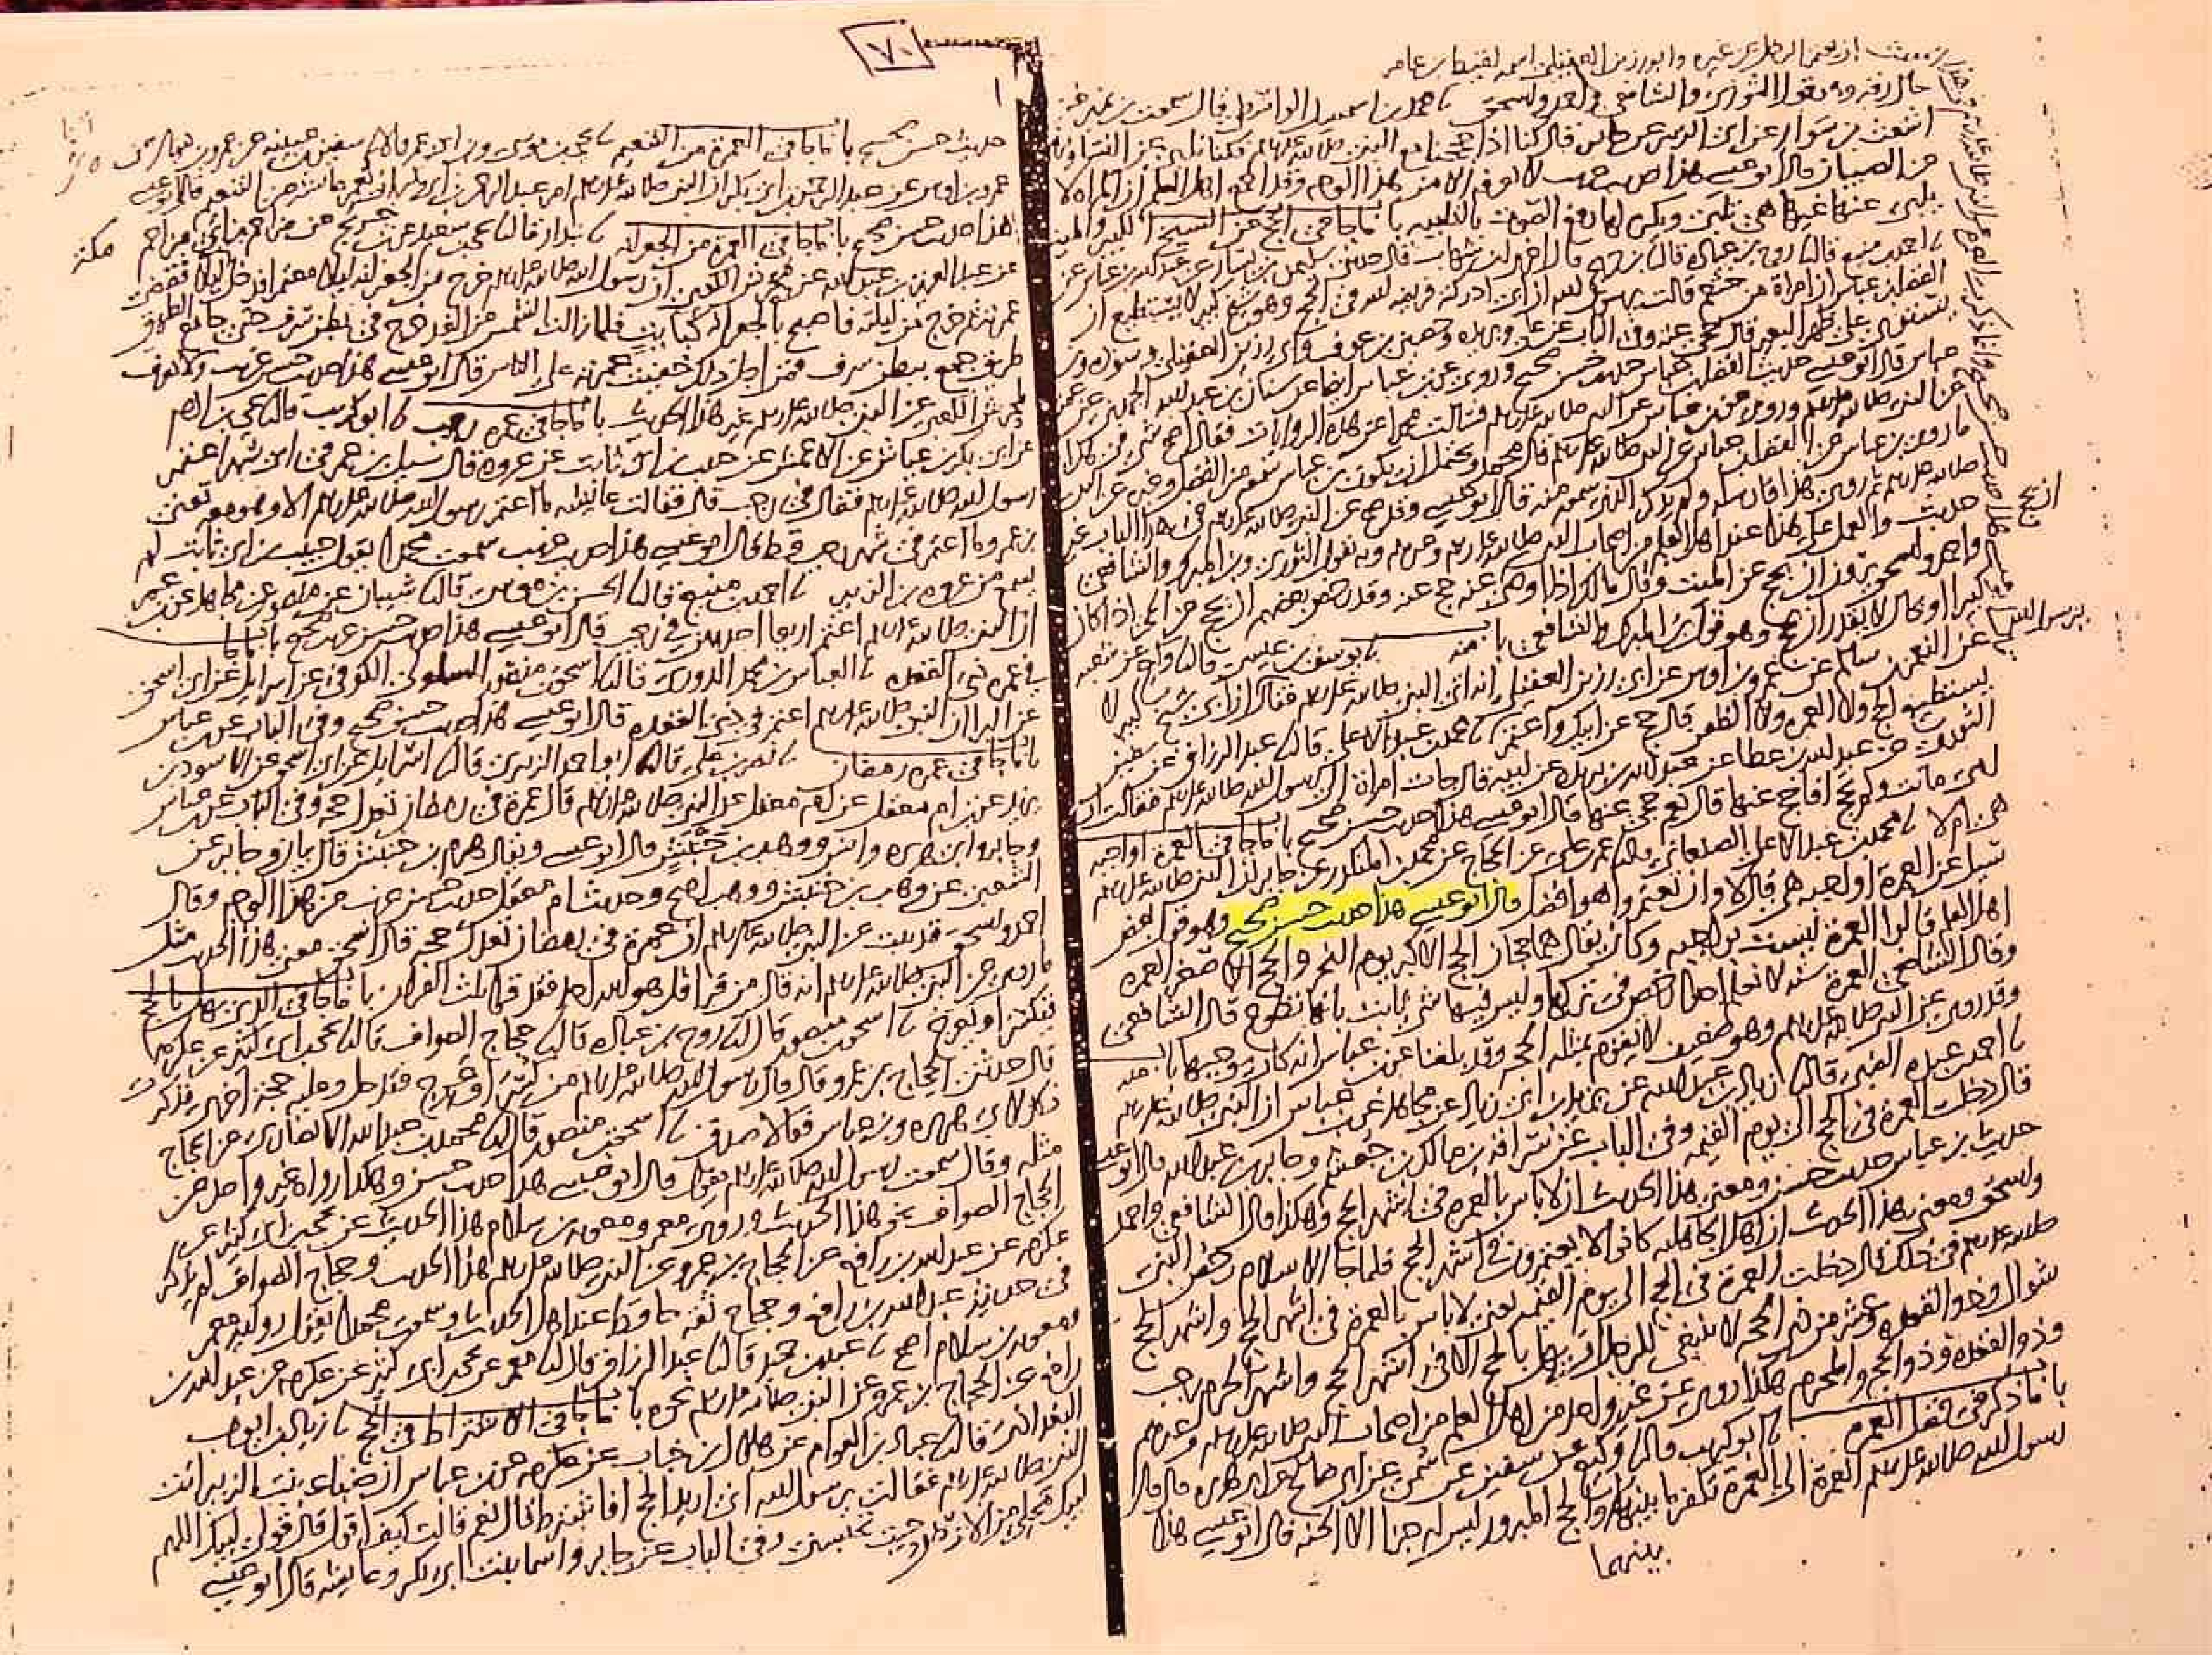 ان يعتمر الرجل عن غيره وابو رزين العقيلي اسمه لقيط بن عامر
حال رفقه وبه يقول الثوري والشافعي واحمد واسحق محمد بن اسمعيل الواسطي قال سمعت بن نمير عن
اشعث بن سوار عن ابي الزبير عن جابر قال كنا اذا حججنا مع النبي صلى الله عليه وسلم فكنا نلبي عن النساء ونرمي
عن الصبيان قال ابو عيسى هذا حديث غريب لا نعرفه الا من هذا الوجه وقد اجمع اهل العلم ان المراه لا
يلبي عنها غيرها هي تلبي ويكره لها رفع الصوت بالتلبيه باب ما جا في الحج عن الشيخ الكبير والميت
احمد بن منيع قال روح بن عباده قال بن جريج قال اخبرني بن شهاب قال حدثني سليمن بن يسار عن عبد الله بن عباس عن
الفضل بن عباس ان امراة من خثعم قالت يرسول الله ان ابي ادركته فريضه الله في الحج وهو شيخ كبير لا يستطيع ان
يستوي على ظهر البعير قال حجي عنه وفي الباب عن علي وبريده وحصين بن عوف وابي رزين العقيلي وسوده وبن
عباس قال ابو عيسى حديث الفضل بن عباس حديث حسن صحيح وروي عن بن عباس ايضا عن سنان بن عبد الله الجهني عن عمته
عن النبي صلى الله عليه وسلم وروي عن بن عباس عن النبي صلى الله عليه وسلم فسالت محمدا عن هذه الروايات فقال اصح شي في هذا
ما روى بن عباس عن الفضل بن عباس عن النبي صلى الله عليه وسلم قال محمد ويحتمل ان يكون بن عباس سمعه من الفضل وغيره عن النبي
صلى الله عليه وسلم ثم روى هذا فارسله ولم يذكر الذي سمعه منه قال ابو عيسى وقد صح عن النبي صلى الله عليه وسلم في هذا الباب غير
حديث والعمل على هذا عند اهل العلم من اصحاب النبي صلى الله عليه وسلم وغيرهم وبه يقول الثوري وبن المبارك والشافعي
واحمد واسحق يرون ان يحج عن الميت وقال مالك اذا اوصى ان يحج عنه حج عنه وقد رخص بعضهم ان يحج عن الحي اذا كان
كبيرا او بحال لا يقدر ان يحج وهو قول بن المبارك والشافعي باب منه يوسف بن عيسى قال وكيع عن شعبه
عن النعمن بن سالم عن عمرو بن اوس عن ابي رزين العقيلي انه اتى النبي صلى الله عليه وسلم فقال ان ابي شيخ كبير لا
يستطيع الحج ولا العمره ولا الظعن قال حج عن ابيك واعتمر محمد بن عبد الاعلى قال عبد الرزاق عن سفين
الثوري عن عبد الله بن عطا عن عبد الله بن بريده عن ابيه قال جات امراة الى رسول الله صلى الله عليه وسلم فقالت ان
امي ماتت ولم تحج افاحج عنها قال نعم حجي عنها قال ابو عيسى هذا حديث حسن صحيح باب ما جا في العمرة اواجبه
هي ام لا محمد بن عبد الاعلى الصنعاني قال عمر بن علي عن الحجاج عن محمد بن المنكدر عن جابر ان النبي صلى الله عليه وسلم
سيل عن العمرة اواجبه هي قال لا وان تعتمروا هو افضل قال ابو عيسى هذا حديث حسن صحيح وهو قول بعض
اهل العلم قالوا العمرة ليست بواجبه وكان يقال هما حجان الحج الاكبر يوم النحر والحج الاصغر العمره
وقال الشافعي العمرة سنه لا نعلم احدا رخص في تركها وليس فيها شي ثابت بانها تطوع قال الشافعي
وقد روي عن النبي صلى الله عليه وسلم وهو ضعيف لا تقوم بمثله الحجه وقد بلغنا عن بن عباس انه كان يوجبها باب منه
احمد بن عبده الضبي قال زياد بن عبد الله عن يزيد بن ابي زياد عن مجاهد عن بن عباس ان النبي صلى الله عليه وسلم
قال دخلت العمرة في الحج الى يوم القيمه وفي الباب عن سراقه بن مالك بن جعشم وجابر بن عبد الله قال ابو عيسى
حديث بن عباس حديث حسن ومعنى هذا الحديث ان لا باس بالعمره في اشهر الحج وهكذا قال الشافعي واحمد
واسحق ومعنى هذا الحديث ان اهل الجاهليه كانوا لا يعتمرون في اشهر الحج فلما جا الاسلام رخص النبي
صلى الله عليه وسلم في ذلك فقال دخلت العمرة في الحج الى يوم القيمه يعني لا باس بالعمرة في اشهر الحج واشهر الحج
شوال وذو القعده وعشر من ذي الحجه لا ينبغي للرجل ان يهل بالحج الا في اشهر الحج واشهر الحرم رجب
وذو القعده وذو الحجه والمحرم هكذا روي عن غير واحد من اهل العلم من اصحاب النبي صلى الله عليه وسلم وغيرهم
باب ما ذكر في فضل العمره ابو كريب قال وكيع عن سفين عن سمي عن ابي صالح عن ابي هريره قال قال
رسول الله صلى الله عليه وسلم العمرة الى العمرة تكفر ما بينهما والحج المبرور ليس له جزا الا الجنه قال ابو عيسى هذا
بينهما
٧٠
حديث حسن صحيح باب ما جا في العمرة من التنعيم يحيى بن موسى وبن ابي عمر قالا سفين بن عيينه عن عمرو بن دينار عن
عمرو بن اوس عن عبد الرحمن بن ابي بكر ان النبي صلى الله عليه وسلم امر عبد الرحمن بن ابي بكر ان يعمر عايشه من التنعيم قال ابو عيسى
هذا حديث حسن صحيح باب ما جا في العمرة من الجعرانه بندار قال يحيى بن سعيد عن بن جريج عن مزاحم بن ابي مزاحم
عن عبد العزيز بن عبد الله عن محرش الكعبي ان رسول الله صلى الله عليه وسلم خرج من الجعرانه ليلا معتمرا فدخل مكة ليلا فقضى
عمرته ثم خرج من ليلته فاصبح بالجعرانه كبايت فلما زالت الشمس من الغد خرج في بطن سرف حتى جامع الطريق
طريق جمع ببطن سرف فمن اجل ذلك خفيت عمرته على الناس قال ابو عيسى هذا حديث حسن غريب ولا نعرف
لمحرش الكعبي عن النبي صلى الله عليه وسلم غير هذا الحديث باب ما جا في عمره رجب ابو كريب قال يحيى بن ادم
عن ابي بكر بن عياش عن الاعمش عن حبيب بن ابي ثابت عن عروه قال سيل بن عمر في اي شهر اعتمر
رسول الله صلى الله عليه وسلم فقال في رجب قال فقالت عايشه ما اعتمر رسول الله صلى الله عليه وسلم الا وهو معه تعني
بن عمر وما اعتمر في شهر رجب قط قال ابو عيسى هذا حديث غريب سمعت محمدا يقول حبيب بن ابي ثابت لم
يسمع من عروه بن الزبير احمد بن منيع قال الحسن بن موسى قال شيبان عن منصور عن مجاهد عن بن عمر
ان النبي صلى الله عليه وسلم اعتمر اربعا احدهن في رجب قال ابو عيسى هذا حديث حسن غريب صحيح باب ما جا
في عمره ذي القعده العباس بن محمد الدوري قال اسحق بن منصور السلولي الكوفي عن اسرايل عن ابي اسحق
عن البرا ان النبي صلى الله عليه وسلم اعتمر في ذي القعده قال ابو عيسى هذا حديث حسن صحيح وفي الباب عن بن عباس
باب ما جا في عمره رمضان نصر بن علي قال ابو احمد الزبيري قال اسرايل عن ابي اسحق عن الاسود بن
يزيد عن بن ام معقل عن ام معقل عن النبي صلى الله عليه وسلم قال عمرة في رمضان تعدل حجه وفي الباب عن بن عباس
وجابر وابي هريره وانس ووهب بن خنبش قال ابو عيسى ويقال هرم بن خنبش قال بيان وجابر عن
الشعبي عن وهب بن خنبش ووهب اصح وحديث ام معقل حديث حسن غريب من هذا الوجه وقال
احمد واسحق قد ثبت عن النبي صلى الله عليه وسلم ان عمرة في رمضان تعدل حجه قال اسحق معنى هذا الحديث مثل
ما روي عن النبي صلى الله عليه وسلم انه قال من قرا قل هو الله احد فقد قرا ثلث القران باب ما جا في الذي يهل بالحج
فيكسر او يعرج اسحق بن منصور قال روح بن عباده قال حجاج الصواف قال يحيى بن ابي كثير عن عكرمه
قال حدثني الحجاج بن عمرو قال قال رسول الله صلى الله عليه وسلم من كسر او عرج فقد حل وعليه حجة اخرى فذكرت
ذلك لابي هريره وبن عباس فقالا صدق اسحق بن منصور قال محمد بن عبد الله الانصاري عن الحجاج
مثله وقال سمعت رسول الله صلى الله عليه وسلم يقول قال ابو عيسى هذا حديث حسن وهكذا رواه غير واحد عن
الحجاج الصواف نحو هذا الحديث وروى معمر ومعويه بن سلام هذا الحديث عن يحيى بن ابي كثير عن
عكرمه عن عبد الله بن رافع عن الحجاج بن عمرو عن النبي صلى الله عليه وسلم هذا الحديث وحجاج الصواف لم يذكر
في حديثه عبد الله بن رافع وحجاج ثقه حافظ عند اهل الحديث وسمعت محمدا يقول روايه معمر
ومعويه بن سلام اصح عبد بن حميد قال عبد الرزاق قال معمر عن يحيى بن ابي كثير عن عكرمه عن عبد الله بن
رافع عن الحجاج بن عمرو عن النبي صلى الله عليه وسلم نحوه باب ما جا في الاشتراط في الحج زياد بن ايوب
البغدادي قال عباد بن العوام عن هلال بن خباب عن عكرمه عن بن عباس ان ضباعه بنت الزبير اتت
النبي صلى الله عليه وسلم فقالت يرسول الله اني اريد الحج افاشترط قال نعم قالت كيف اقول قال قولي لبيك اللهم
لبيك محلي من الارض حيث تحبسني وفي الباب عن جابر واسما بنت ابي بكر وعايشه قال ابو عيسى